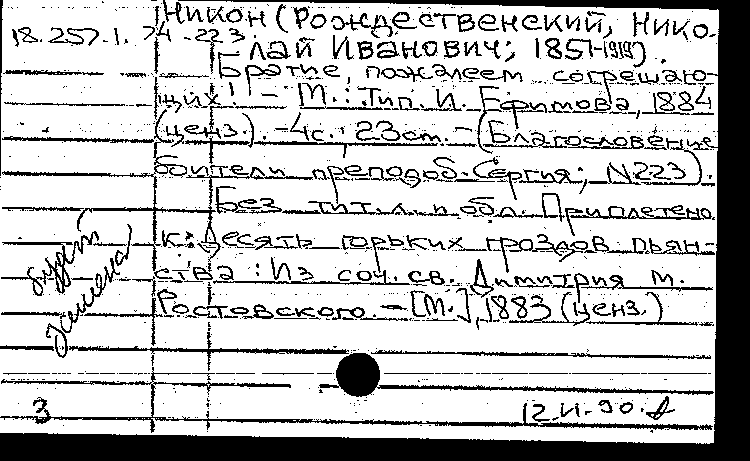 Никон (Рождественский, Нико-
18.257.1.74.223.
лай Иванович; 1851-1919).
Братие, пожалеем согрешаю-
щих! - М.: Тип. И. Ефимова, 1884
(ценз.). - 4с.; 23см. - (Благословение
обители преподоб. Сергия; N223).
Без тит. л. и обл. Приплетено
к: Десять горьких гроздов пьян-
ства: Из соч. св. Димитрия м.
Ростовского. - [М.], 1883 (ценз.)
будет
замена
3
12.VI.90.